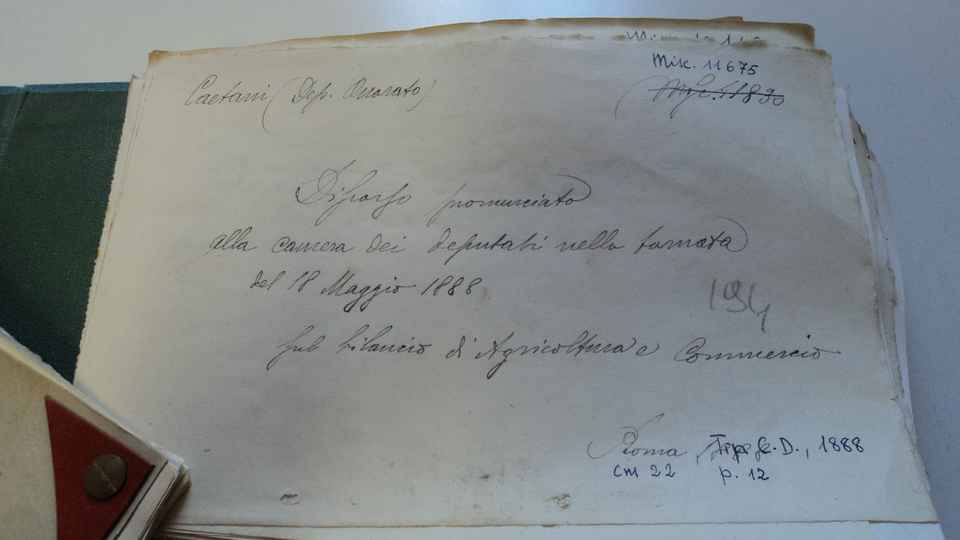 Misc. 11675
Caetani (Dep. Onorato)
Misc. 11890
Discorso pronunciato
alla camera dei deputati nella tornata
del 18 Maggio 1888
sul bilancio di Agricoltura e Commercio
194
Roma, C. D., 1888
cm 22 p. 12